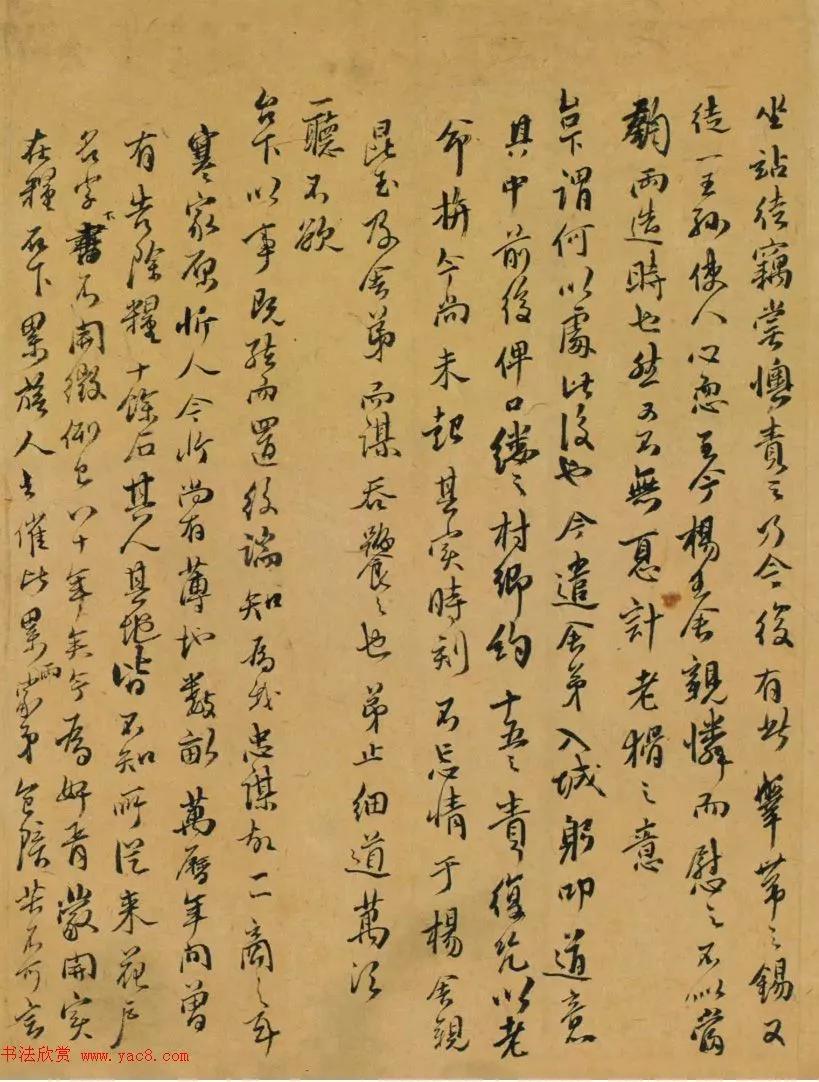 坐站徒竊嘗懊責之乃今後有此鞶帶之錫又
徒一王孫使人心忽至今楊生舍親憐而慰之不以當
兩造時也然又不無憂計老猾之意
台下謂何以處此後也今遣舍弟入城躬叩道意
其中前後俾口縷之村鄉約十五之責復以老
命拚今尚未起其實時刻不忘情于楊舍親
昆玉及舍弟而謀吞饕之也弟止細道萬須
一聽不欲
台下以事既結而置後端知為我忠謀故一二商之耳
寒家原忻人今忻尚有薄地數畝萬曆年間曾
有告除糧十餘石其人其地皆不知所從來花戶
名字下書不開徵例已八十年矣今為奸胥蒙開實
在糧石下累族人去催比累而家弟包賠苦不可言
书法欣赏 www.yac8.com